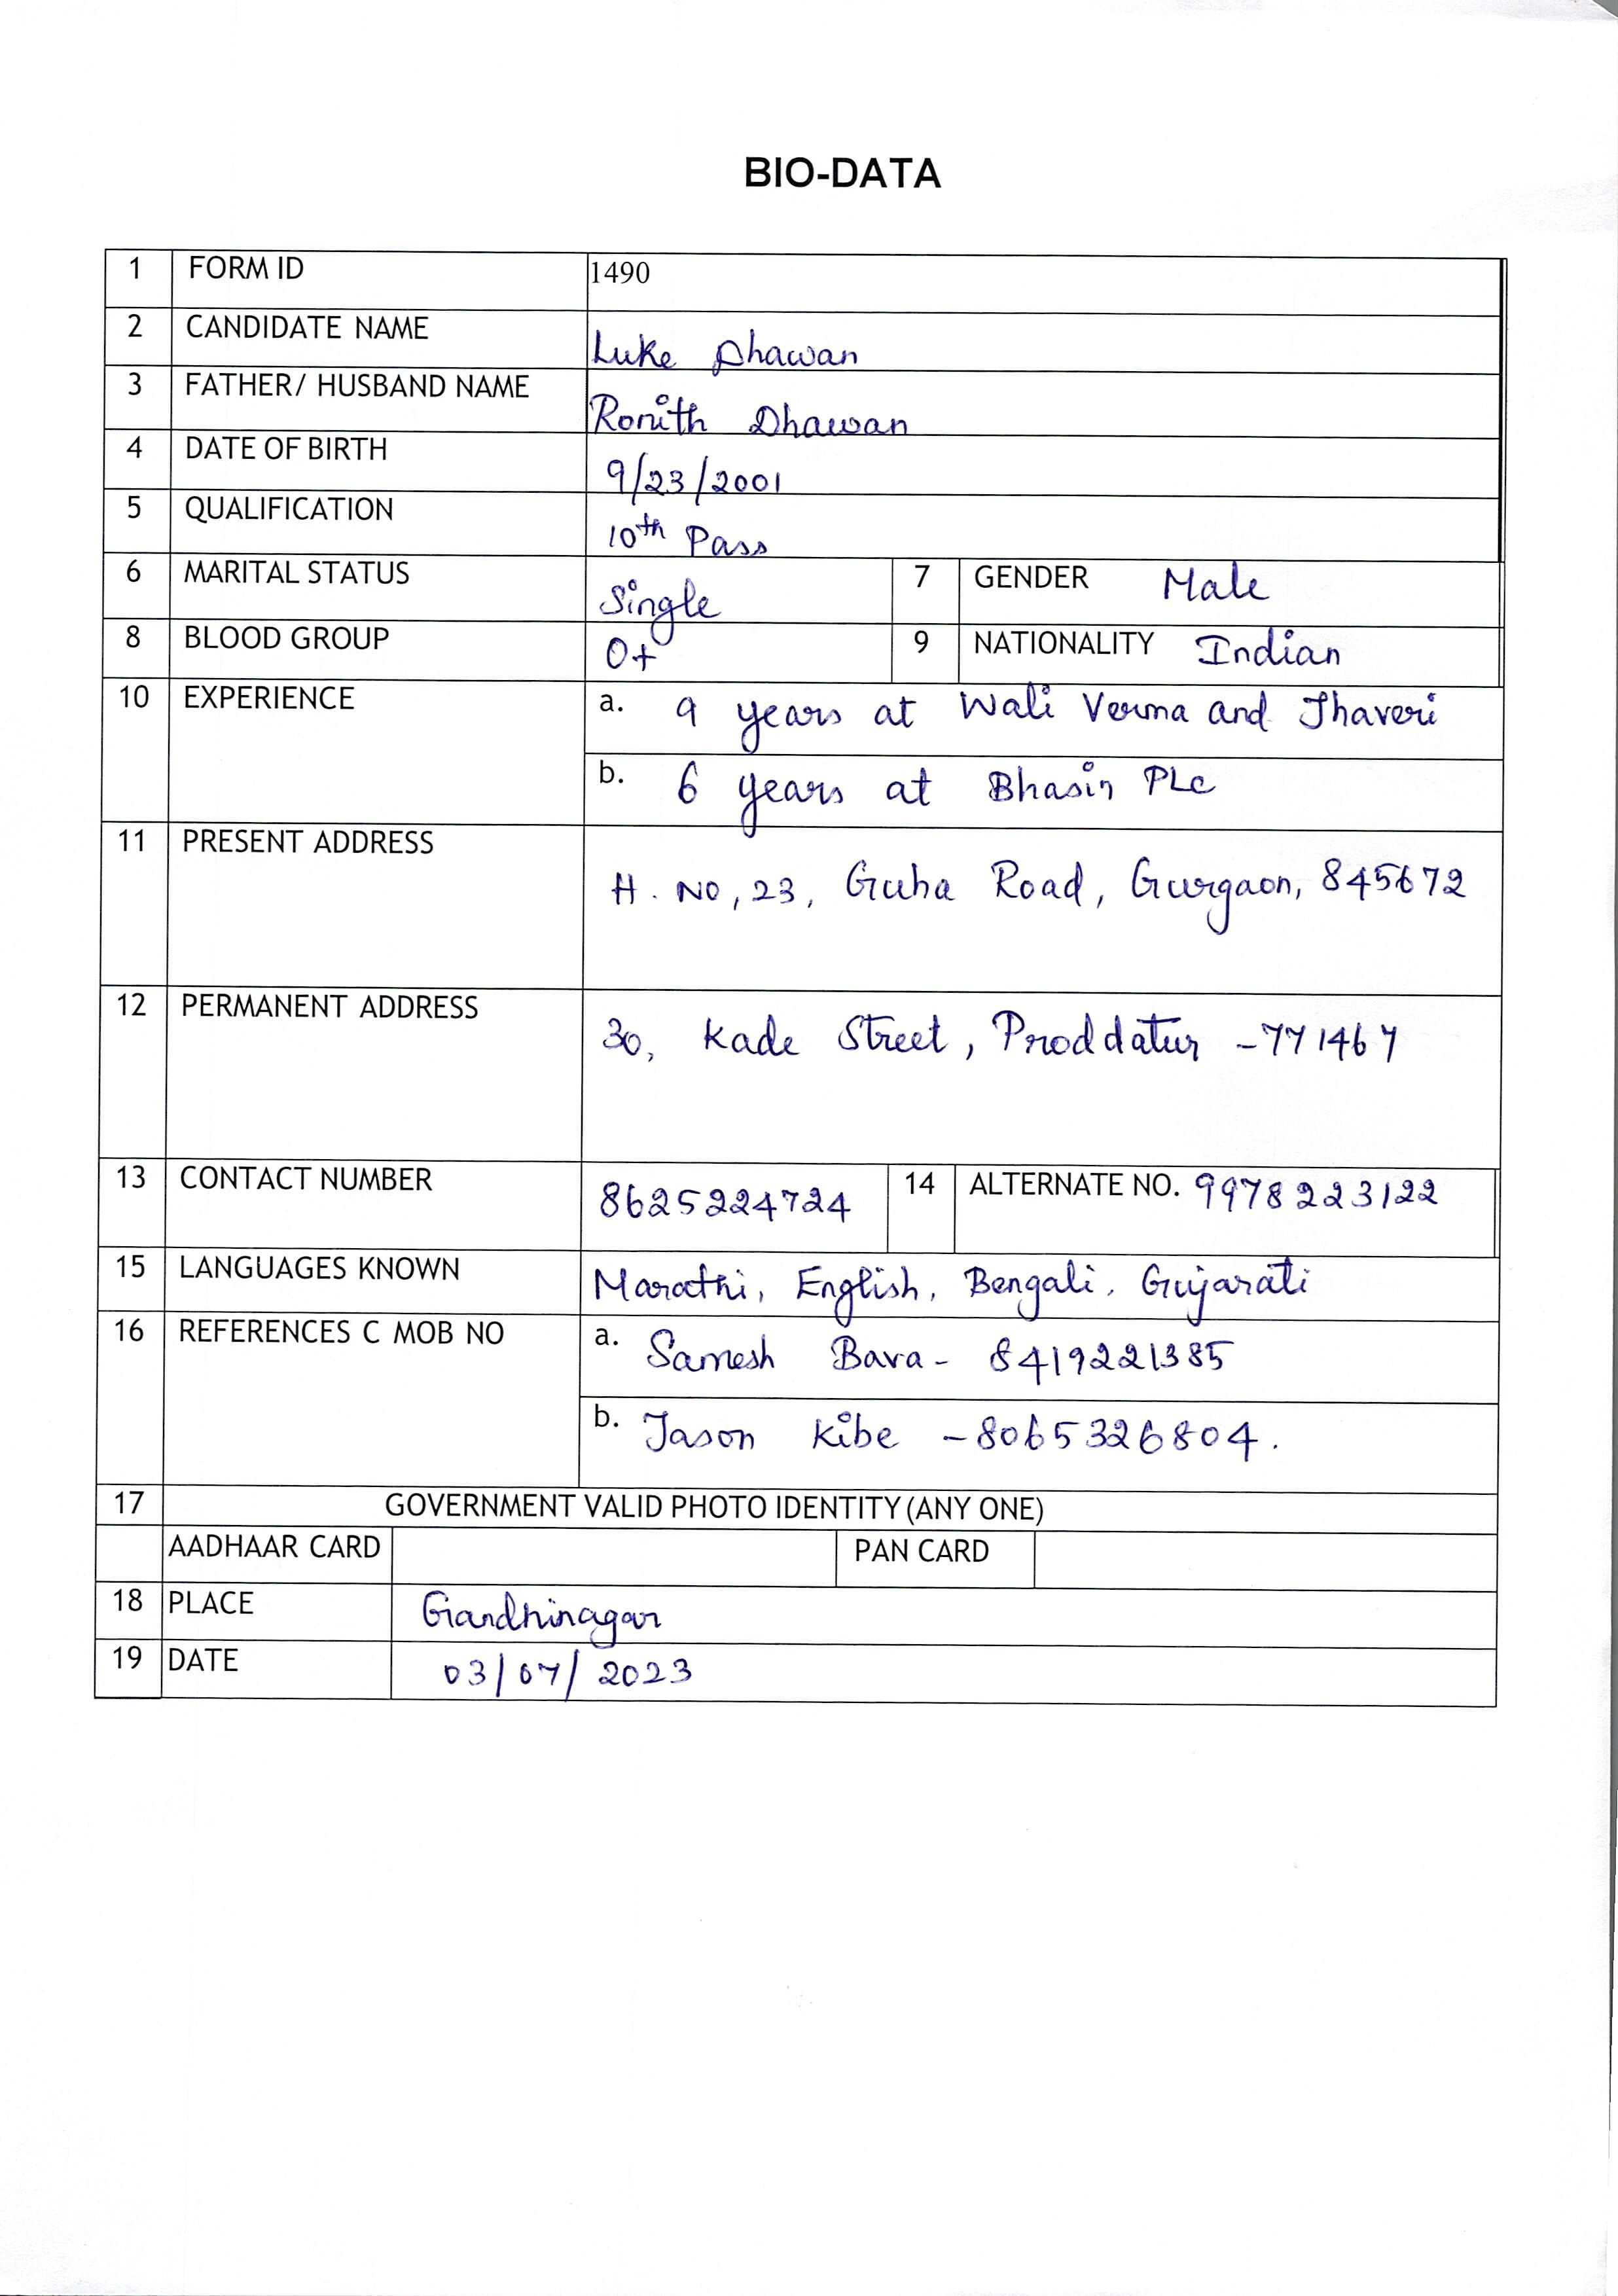 BIO-DATA
1 FORM ID 1490
2 CANDIDATE NAME Luke Dhawan
3 FATHER/ HUSBAND NAME Ronith Dhawan
4 DATE OF BIRTH 9/23/2001
5 QUALIFICATION 10th Pass
6 MARITAL STATUS Single 7 GENDER Male
8 BLOOD GROUP O+ 9 NATIONALITY Indian
10 EXPERIENCE a. 9 years at Wali Verma and Jhaveri
b. 6 years at Bhasin PLC
11 PRESENT ADDRESS
H. No, 23, Guha Road, Gurgaon, 845672
12 PERMANENT ADDRESS
30, Kade Street, Proddatur -771467
13 CONTACT NUMBER 8625224724 14 ALTERNATE NO. 9978223122
15 LANGUAGES KNOWN Marathi, English, Bengali, Gujarati
16 REFERENCES C MOB NO a. Samesh Bava - 8419221385
b. Jason Kibe -8065326804.
17 GOVERNMENT VALID PHOTO IDENTITY (ANY ONE)
AADHAAR CARD PAN CARD
18 PLACE Gandhinagar
19 DATE 03/07/2023